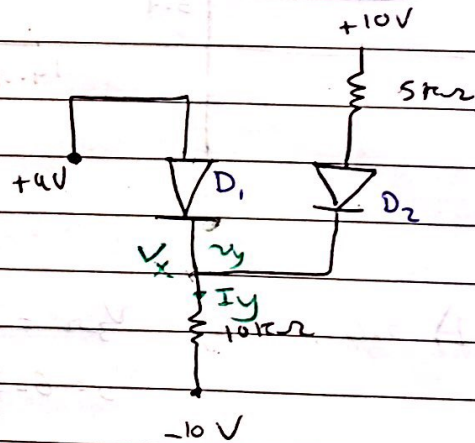 +10V
5kΩ
+4V
D1
D2
Vx
vy
Iy
10kΩ
-10 V